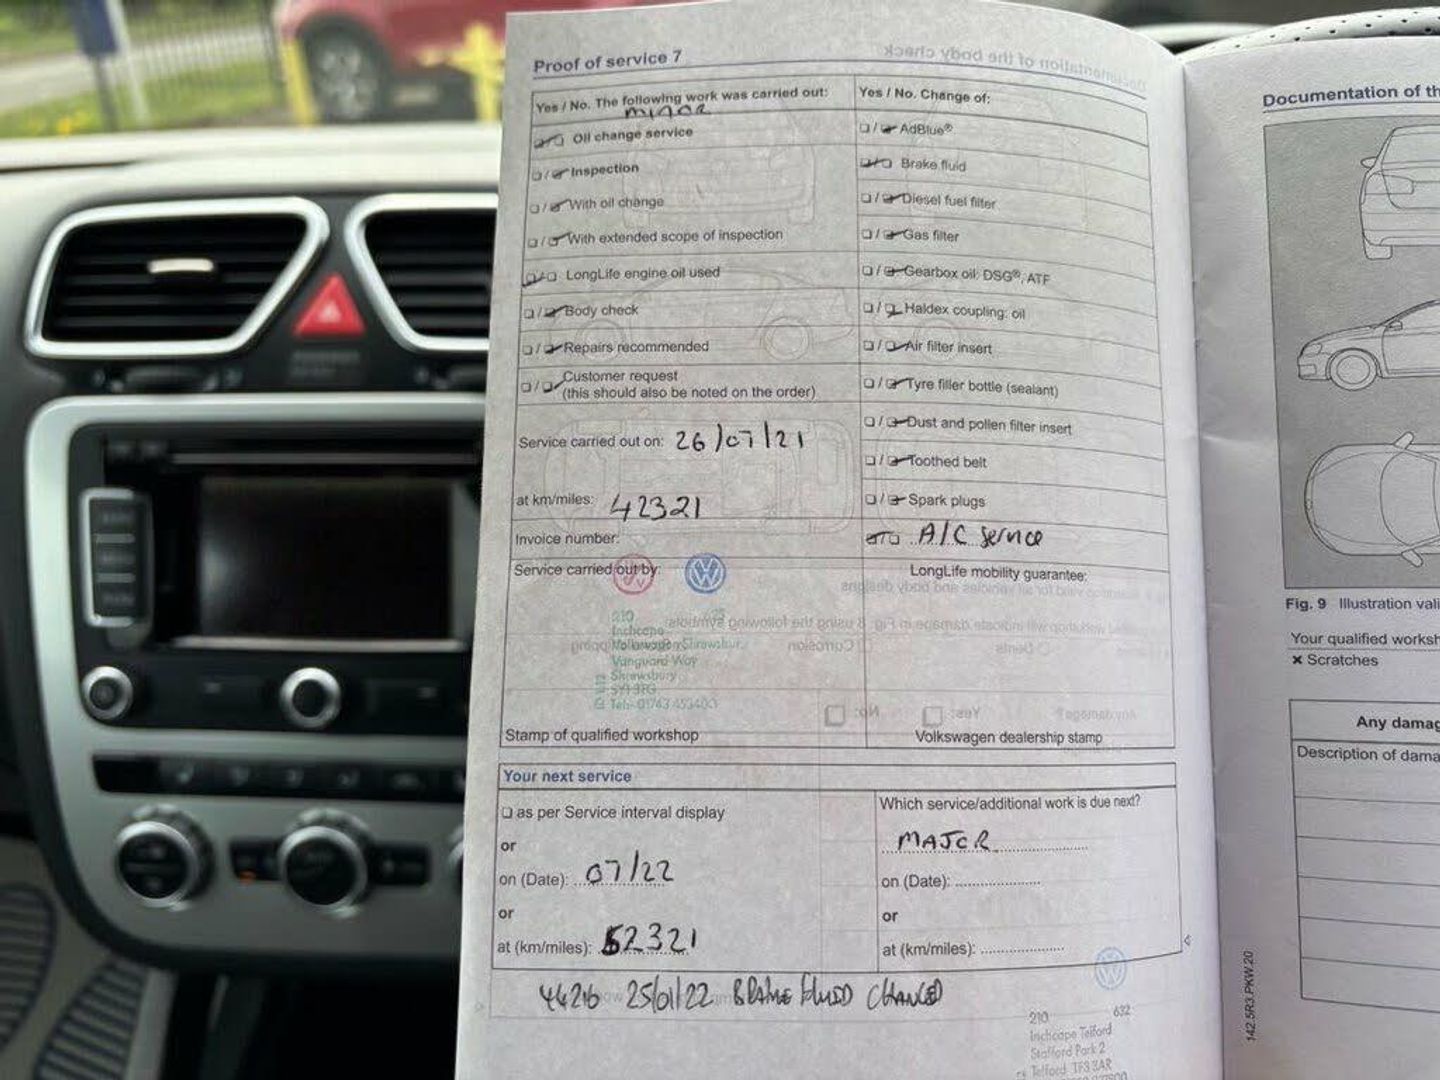 Proof of service 7
Documentation of the body check
Yes / No. The following work was carried out:
MINOR
Oil change service
Inspection
With oil change
With extended scope of inspection
LongLife engine oil used
Body check
Repairs recommended
Customer request
(this should also be noted on the order)
Service carried out on: 26/07/21
at km/miles: 42321
Invoice number:
Service carried out by:
210
Inchcape
Volkswagen Shrewsbury
Vanguard Way
Shrewsbury
SY1 3TG
Tel:- 01743 453400
Stamp of qualified workshop
Yes / No. Change of:
AdBlue®
Brake fluid
Diesel fuel filter
Gas filter
Gearbox oil: DSG®, ATF
Haldex coupling: oil
Air filter insert
Tyre filler bottle (sealant)
Dust and pollen filter insert
Toothed belt
Spark plugs
A/C Service
LongLife mobility guarantee:
Volkswagen dealership stamp
Your next service
as per Service interval display
or
on (Date): 07/22
or
at (km/miles): 52321
Which service/additional work is due next?
MAJOR
on (Date):
or
at (km/miles):
44216 25/01/22 BRAKE FLUID CHANGED
210 632
Inchcape Telford
Stafford Park 2
Telford TF3 3AR
142.5R3.PKW.20
Documentation of th
Fig. 9 Illustration vali
Your qualified worksh
× Scratches
Any damag
Description of dama